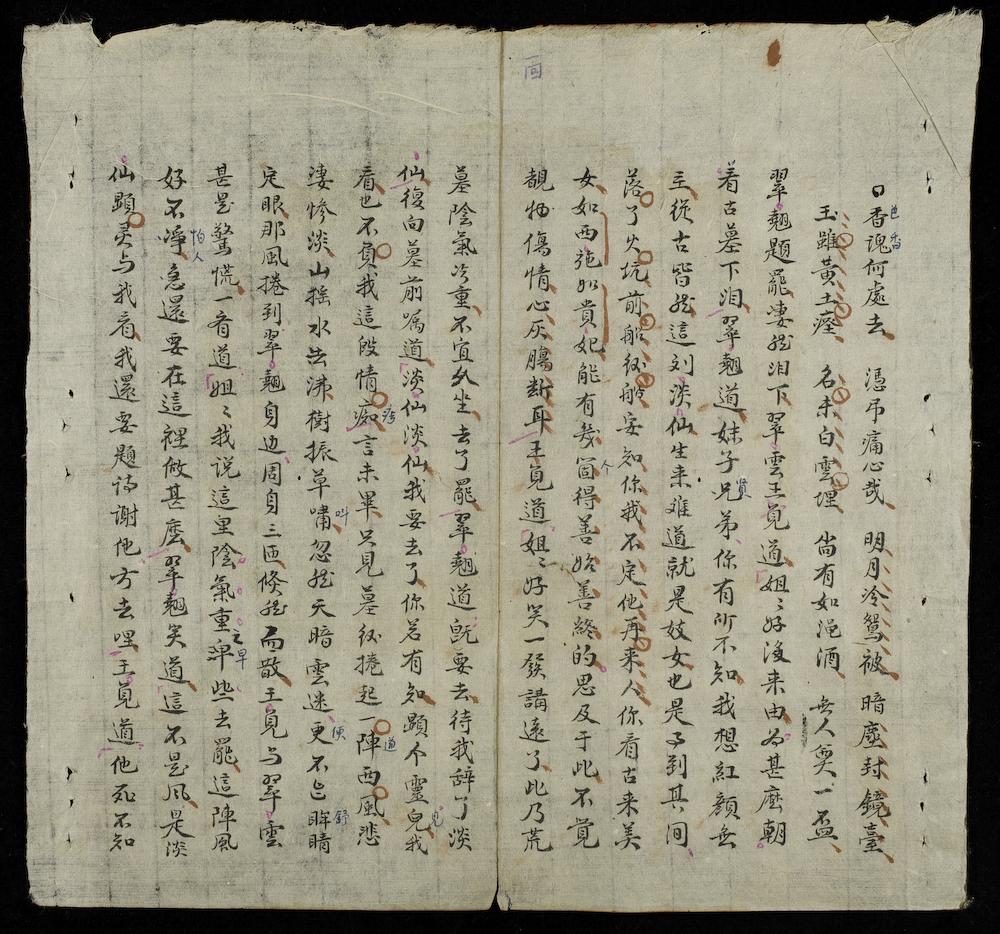 口香魂何處去 憑吊痛心哉 明月冷鴛被 暗塵封鏡臺
色香
玉雖黄土瘞 名未白雲埋 尚有如渑酒 無人奠一盃
翠翹題罷凄然泪下翠雲王覓道姐〻好没来由為甚麽朝
着古墓下泪翠翹道妹子兄弟你有所不知我想紅顔無
賢
主從古皆然這刘淡仙生来难道就是妓女也是子到其间
落了火坑前船後船安知你我不定他再来人你看古来美
女如西施如貴妃能有幾箇得善始善終的思及于此不覚
个
覩物傷情心灰膓断耳王覓道姐〻好哭一發講遠了此乃荒
回
墓陰氣冷重不宜久坐去了罷翠翹道既要去待我辞了淡
仙復向墓前嘱道淡仙淡仙我要去了你若有知顕个靈皃我
見
看也不負我這段情痴言未畢只見墓後捲起一陣西風悲
道
凄惨淡山摇水沸樹振草嘯忽然天暗雲迷更不㠯眸睛
叫 便
定眼那風捲到翠翹自边周自三匝倏然而散王覓与翠雲
甚是驚慌一看道姐〻我说這里陰氣重早些去罷這陣風
之早
好不凈急還要在這裡做甚麽翠翹笑道這不是风是淡
怕人
仙顕灵与我看我還要題诗謝他方去哩王覓道他死不知